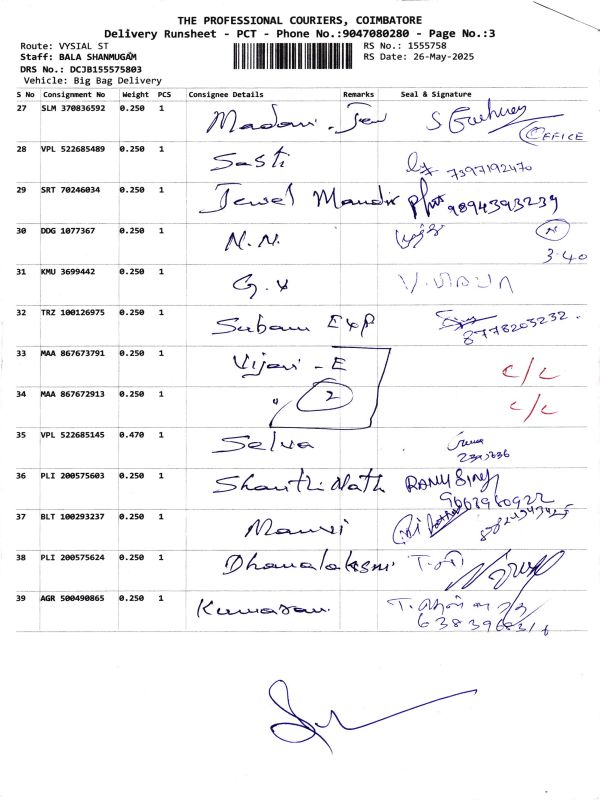 THE PROFESSIONAL COURIERS, COIMBATORE
Delivery Runsheet - PCT - Phone No.:9047080280 - Page No.:3
Route: VYSIAL ST
RS No.: 1555758
Staff: BALA SHANMUGAM
RS Date: 26-May-2025
DRS No.: DCJB155575803
Vehicle: Big Bag Delivery
S No Consignment No Weight PCS Consignee Details Remarks Seal & Signature
27 SLM 370836592 0.250 1 Madavi.
OFFICE
28 VPL 522685489 0.250 1 Sasti 7397192470
29 SRT 70246034 0.250 1 Jewel Mandir 9894393239
30 DDG 1077367 0.250 1 N.N. N
3.40
31 KMU 3699442 0.250 1 G.V
32 TRZ 100126975 0.250 1 Subam Exp 8778203232.
33 MAA 867673791 0.250 1 - E C/C
34 MAA 867672913 0.250 1 " 2 C/C
35 VPL 522685145 0.470 1 Selva
36 PLI 200575603 0.250 1 Shanthi Nath
9663960922
37 BLT 100293237 0.250 1
38 PLI 200575624 0.250 1 Dhanalaksmi
39 AGR 500490865 0.250 1 Kumaran